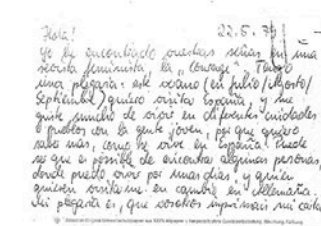 ¡Hola! 22.5.79
yo he encontrado vuestras señas en una
revista feminista, la "Courage". Tengo
una plegaria: este verano (en Julio/Agosto/
Septiembre) quiero visitar España, y me
guste mucho de vivir en diferentes ciudades
o pueblos con la gente joven, por que quiero
saber mas, como se vive en España. Puede
ser que es posible de encontrar algunas personas,
donde puedo vivir por unas dias, y quien
quieren visitarme en cambio en Allemaña.
Mi plegaria es, que vosotros imprimais mi carta